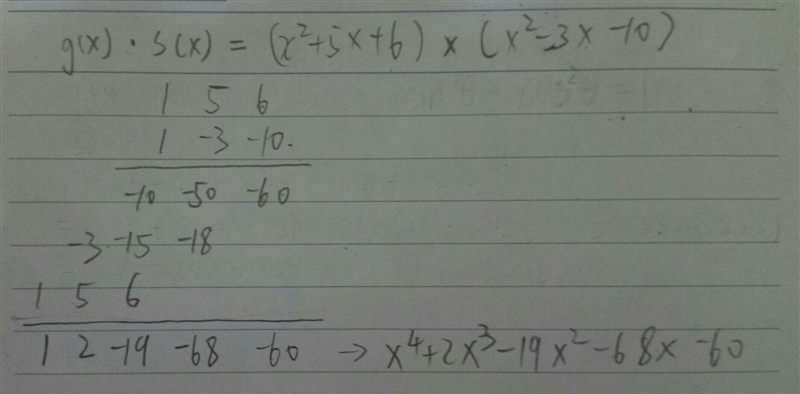 g(x) · s(x) = (x²+5x+6) × (x²-3x-10)
1 5 6
1 -3 -10.
-10 -50 -60
-3 -15 -18
1 5 6
1 2 -19 -68 -60 → x⁴+2x³-19x²-68x-60